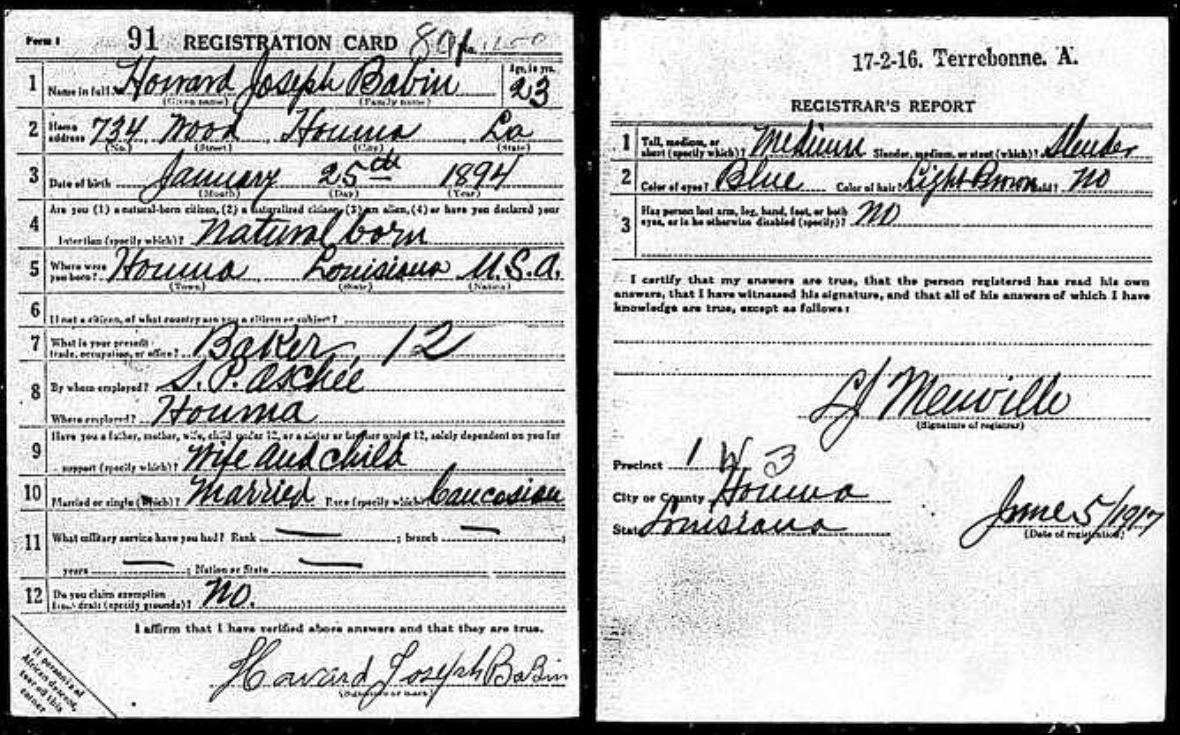 Form 1 91 REGISTRATION CARD
1 Name in full Howard Joseph Babin Age, in yrs. 23
(Given name) (Family name)
2 Home address 734 Wood Houma La
(No.) (Street) (City) (State)
3 Date of birth January 25th 1894
(Month) (Day) (Year)
4 Are you (1) a natural-born citizen, (2) a naturalized citizen, (3) an alien, (4) or have you declared your
intention (specify which)? Natural born
5 Where were you born? Houma Louisiana U.S.A.
(Town) (State) (Nation)
6 If not a citizen, of what country are you a citizen or subject?
7 What is your present trade, occupation, or office? Baker 12
8 By whom employed? S. P.
Where employed? Houma
9 Have you a father, mother, wife, child under 12, or a sister or brother under 12, solely dependent on you for
support (specify which)? Wife and child
10 Married or single (which)? Married Race (specify which)? Caucasian
11 What military service have you had? Rank ; branch ;
years ; Nation or State
12 Do you claim exemption from draft (specify grounds)? No.
I affirm that I have verified above answers and that they are true.
Howard Joseph Babin
(Signature or mark)
If person is of
African descent,
tear off this
corner
17-2-16. Terrebonne. A.
REGISTRAR'S REPORT
1 Tall, medium, or short (specify which)? Medium Slender, medium, or stout (which)? Slender
2 Color of eyes? Blue Color of hair? Light Brown No
3 Has person lost arm, leg, hand, foot, or both eyes, or is he otherwise disabled (specify)? No
I certify that my answers are true, that the person registered has read his own
answers, that I have witnessed his signature, and that all of his answers of which I have
knowledge are true, except as follows:
LJ Menville
(Signature of registrar)
Precinct 1 W 3
City or County Houma
State Louisiana
June 5/1917
(Date of registration)